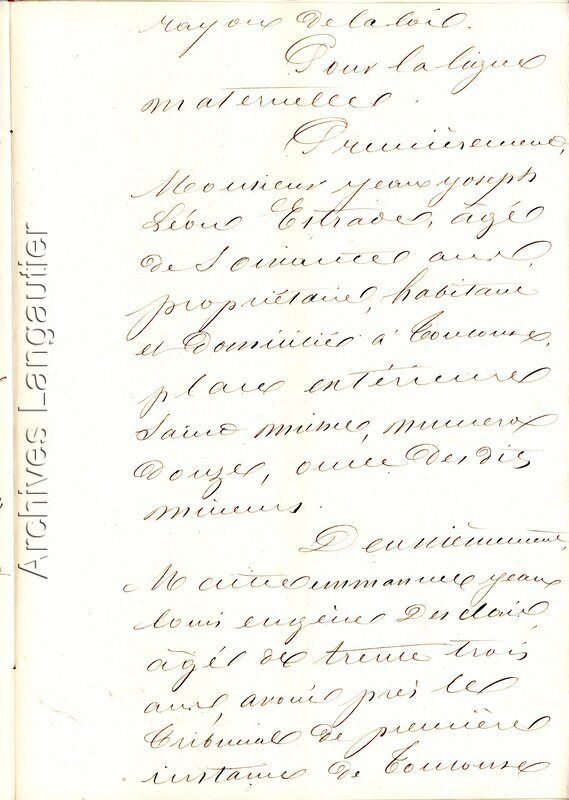 rayon de la loi.
Pour la ligne
maternelle.
Premièrement,
Monsieur Jean Joseph
Léon Estrade, âgé
de soixante ans,
propriétaire, habitant
et domicilié à Toulouse,
place extérieure
Saint Michel, numéro
douze, oncle des dits
mineurs.
Deuxièmement,
Maitre Emmanuel Jean
Louis Eugène Desclaix,
âgé de trente trois
ans, avoué près le
Tribunal de première
instance de Toulouse
Archives Langautier